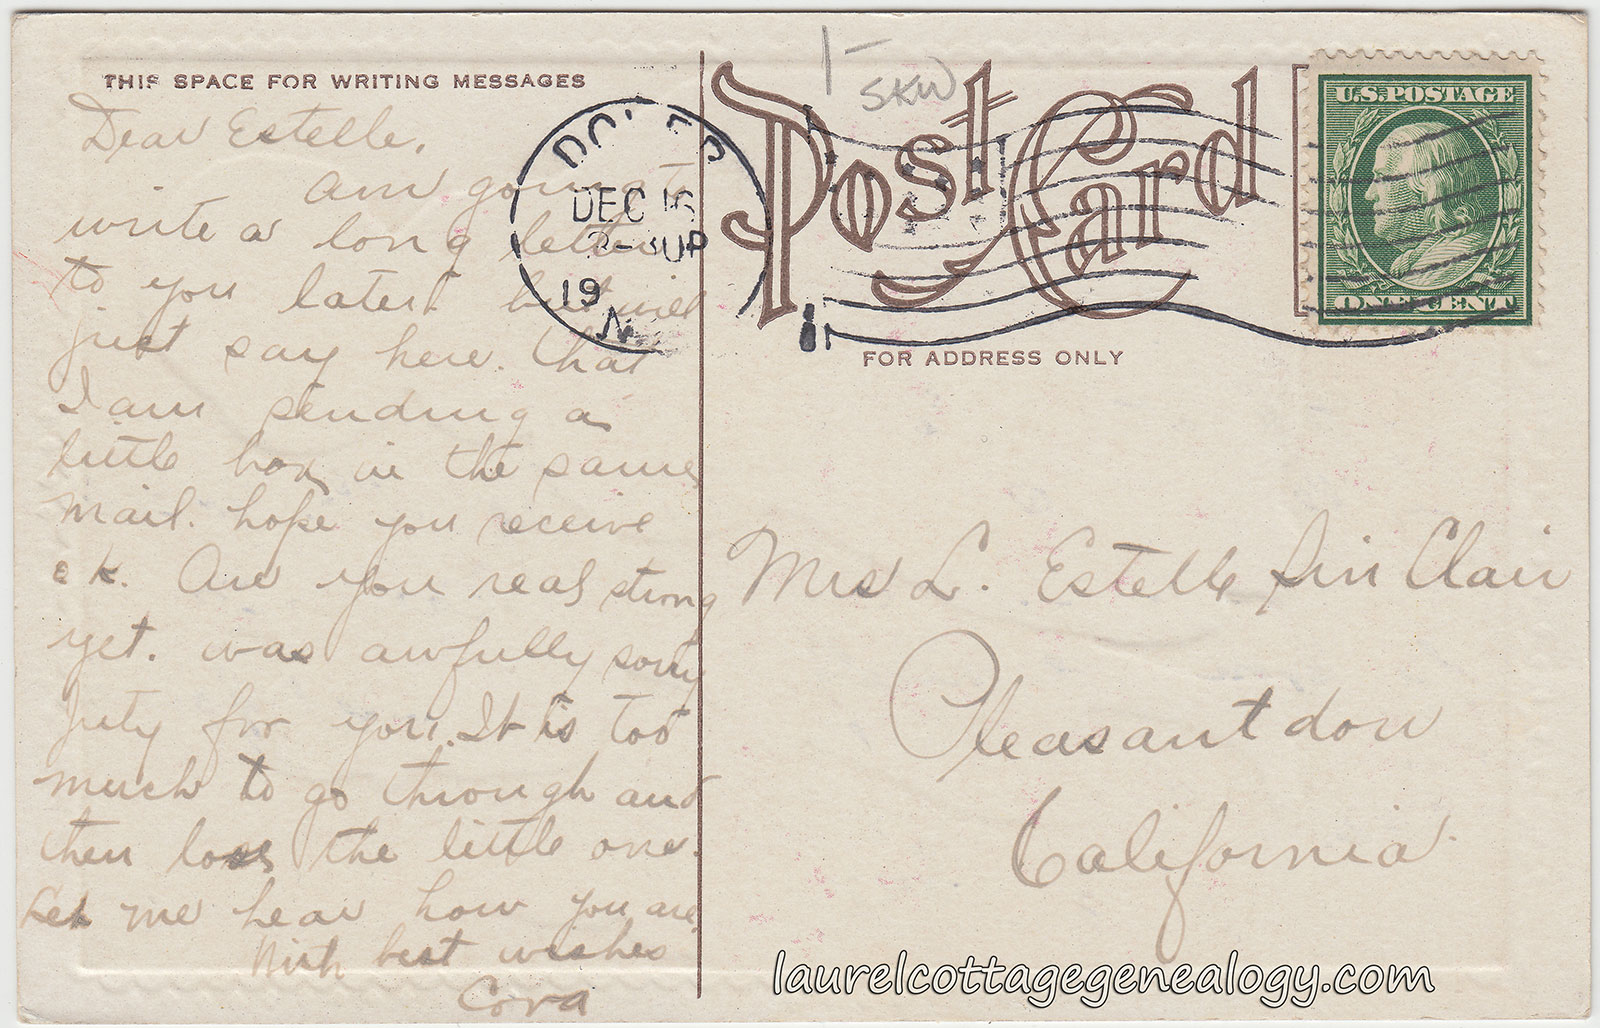 THIS SPACE FOR WRITING MESSAGES
Dear Estelle.
Am going to
write a long letter
to you later but will
just say here. that
I am sending a
little box in the same
mail. hope you receive
ok. Are you real strong
yet. was awfully sorry
for you. It is too
much to go through and
then loss the little one.
Let me hear how you are
With best wishes
Cora
1-
SKW
Post Card
DEC 16
19
N.
U.S.POSTAGE
ONE CENT
FOR ADDRESS ONLY
Mrs L. Estelle Sin Clair
Pleasantdon
California
laurelcottagegenealogy.com